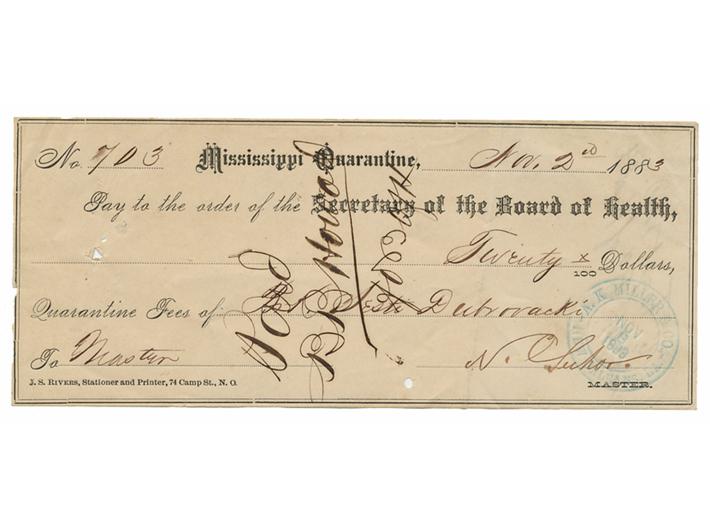 No. 703 Mississippi Quarantine, Nov. 2nd 1883
Pay to the order of the Secretary of the Board of Health,
Twenty x/100 Dollars,
Quarantine Fees of Dubrovacki
To Master N. Suhor.
MASTER.
J. S. RIVERS, Stationer and Printer, 74 Camp St., N. O.
K. MILLER & CO.
NOV